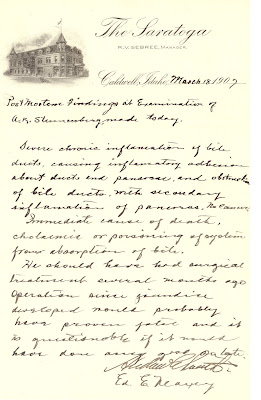 The Saratoga
R.V. SEBREE, MANAGER.
Caldwell, Idaho, March 18 1907
Post Mortem Findings at Examination of
A.K. Steunenberg made today.
Severe chronic inflamation of bile
ducts, causing inflamatory adhesion
about ducts and pancreas, and obstruction
of bile ducts. With secondary
inflamation of pancreas. No Cancer.
Immediate cause of death,
cholaemic or poisoning of system
from absorption of bile.
He should have had surgical
treatment several months ago
Operation since jaundice
developed would probably
have proven fatal and it
is questionable if it would
have done any good
Ed E